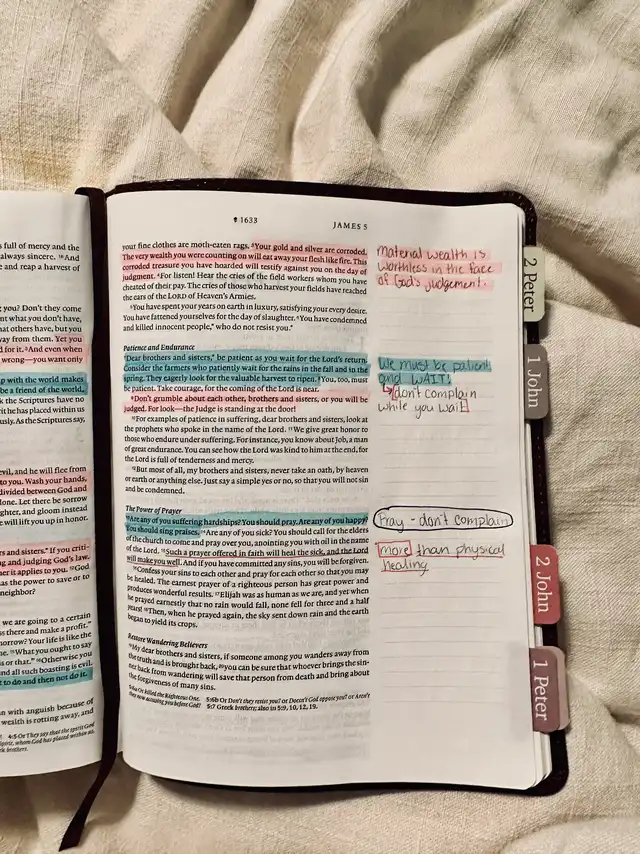 s full of mercy and the
always sincere. ¹⁸And
e and reap a harvest of
g you? Don't they come
nt what you don't have,
hat others have, but you
way from them. Yet you
d for it. ³And even when
wrong—you want only
p with the world makes
be a friend of the world,
k the Scriptures have no
it he has placed within us
usly. As the Scriptures say,
evil, and he will flee from
u. Wash your hands,
divided between God and
done. Let there be sorrow
ghter, and gloom instead
e will lift you up in honor.
rs and sisters." If you criti-
ng and judging God's law.
er it applies to you. ¹²God
as the power to save or to
neighbor?
we are going to a certain
ss there and make a profit."
morrow? Your life is like the
e. ¹⁵What you ought to say
s or that." ¹⁶Otherwise you
nd all such boasting is evil.
t to do and then not do it.
n with anguish because of
wealth is rotting away, and
4:5 Or They say that the spirit God
spirit, whom God has placed within us,
k brothers.
1633
JAMES 5
your fine clothes are moth-eaten rags. ³Your gold and silver are corroded.
The very wealth you were counting on will eat away your flesh like fire. This
corroded treasure you have hoarded will testify against you on the day of
judgment. ⁴For listen! Hear the cries of the field workers whom you have
cheated of their pay. The cries of those who harvest your fields have reached
the ears of the LORD of Heaven's Armies.
⁵You have spent your years on earth in luxury, satisfying your every desire.
You have fattened yourselves for the day of slaughter. ⁶You have condemned
and killed innocent people,* who do not resist you.*
Patience and Endurance
⁷Dear brothers and sisters,* be patient as you wait for the Lord's return.
Consider the farmers who patiently wait for the rains in the fall and in the
spring. They eagerly look for the valuable harvest to ripen. ⁸You, too, must
be patient. Take courage, for the coming of the Lord is near.
⁹Don't grumble about each other, brothers and sisters, or you will be
judged. For look—the Judge is standing at the door!
¹⁰For examples of patience in suffering, dear brothers and sisters, look at
the prophets who spoke in the name of the Lord. ¹¹We give great honor to
those who endure under suffering. For instance, you know about Job, a man
of great endurance. You can see how the Lord was kind to him at the end, for
the Lord is full of tenderness and mercy.
¹²But most of all, my brothers and sisters, never take an oath, by heaven
or earth or anything else. Just say a simple yes or no, so that you will not sin
and be condemned.
The Power of Prayer
¹³Are any of you suffering hardships? You should pray. Are any of you happy?
You should sing praises. ¹⁴Are any of you sick? You should call for the elders
of the church to come and pray over you, anointing you with oil in the name
of the Lord. ¹⁵Such a prayer offered in faith will heal the sick, and the Lord
will make you well. And if you have committed any sins, you will be forgiven.
¹⁶Confess your sins to each other and pray for each other so that you may
be healed. The earnest prayer of a righteous person has great power and
produces wonderful results. ¹⁷Elijah was as human as we are, and yet when
he prayed earnestly that no rain would fall, none fell for three and a half
years! ¹⁸Then, when he prayed again, the sky sent down rain and the earth
began to yield its crops.
Restore Wandering Believers
¹⁹My dear brothers and sisters, if someone among you wanders away from
the truth and is brought back, ²⁰you can be sure that whoever brings the sin-
ner back from wandering will save that person from death and bring about
the forgiveness of many sins.
5:6a Or killed the Righteous One. 5:6b Or Don't they resist you? or Doesn't God oppose you? or Aren't
they now accusing you before God? 5:7 Greek brothers; also in 5:9, 10, 12, 19.
Material wealth is
worthless in the face
of God's judgement.
We must be patient
and WAIT!
don't complain
while you wait
Pray - don't complain
more than physical
healing
2 Peter
1 John
2 John
1 Peter